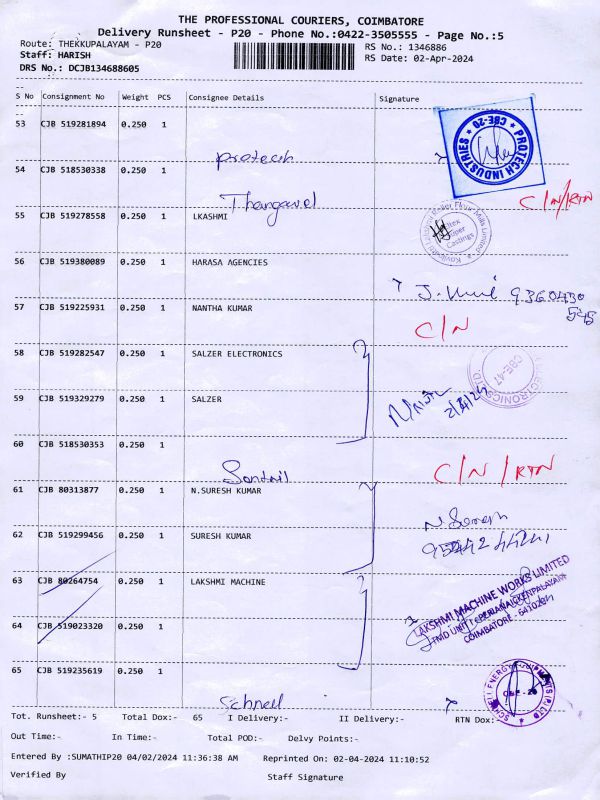 THE PROFESSIONAL COURIERS, COIMBATORE
Delivery Runsheet - P20 - Phone No.:0422-3505555 - Page No.:5
Route: THEKKUPALAYAM - P20 RS No.: 1346886
Staff: HARISH RS Date: 02-Apr-2024
DRS No.: DCJB134688605
S No Consignment No Weight PCS Consignee Details Signature
53 CJB 519281894 0.250 1
protech
PROTECH INDUSTRIES CBE-20
54 CJB 518530338 0.250 1
Thangavel C/N/RTN
55 CJB 519278558 0.250 1 LKASHMI
56 CJB 519380089 0.250 1 HARASA AGENCIES
9360430
545
57 CJB 519225931 0.250 1 NANTHA KUMAR
C/N
58 CJB 519282547 0.250 1 SALZER ELECTRONICS
CBE-47
59 CJB 519329279 0.250 1 SALZER
2/4/24
60 CJB 518530353 0.250 1
C/N/RTN
61 CJB 80313877 0.250 1 N.SURESH KUMAR
62 CJB 519299456 0.250 1 SURESH KUMAR
63 CJB 80264754 0.250 1 LAKSHMI MACHINE
LAKSHMI MACHINE WORKS LIMITED
COIMBATORE
64 CJB 519023320 0.250 1
65 CJB 519235619 0.250 1
Schnell
CBE-20
Tot. Runsheet:- 5 Total Dox:- 65 I Delivery:- II Delivery:- RTN Dox:-
Out Time:- In Time:- Total POD:- Delvy Points:-
Entered By :SUMATHIP20 04/02/2024 11:36:38 AM Reprinted On: 02-04-2024 11:10:52
Verified By Staff Signature